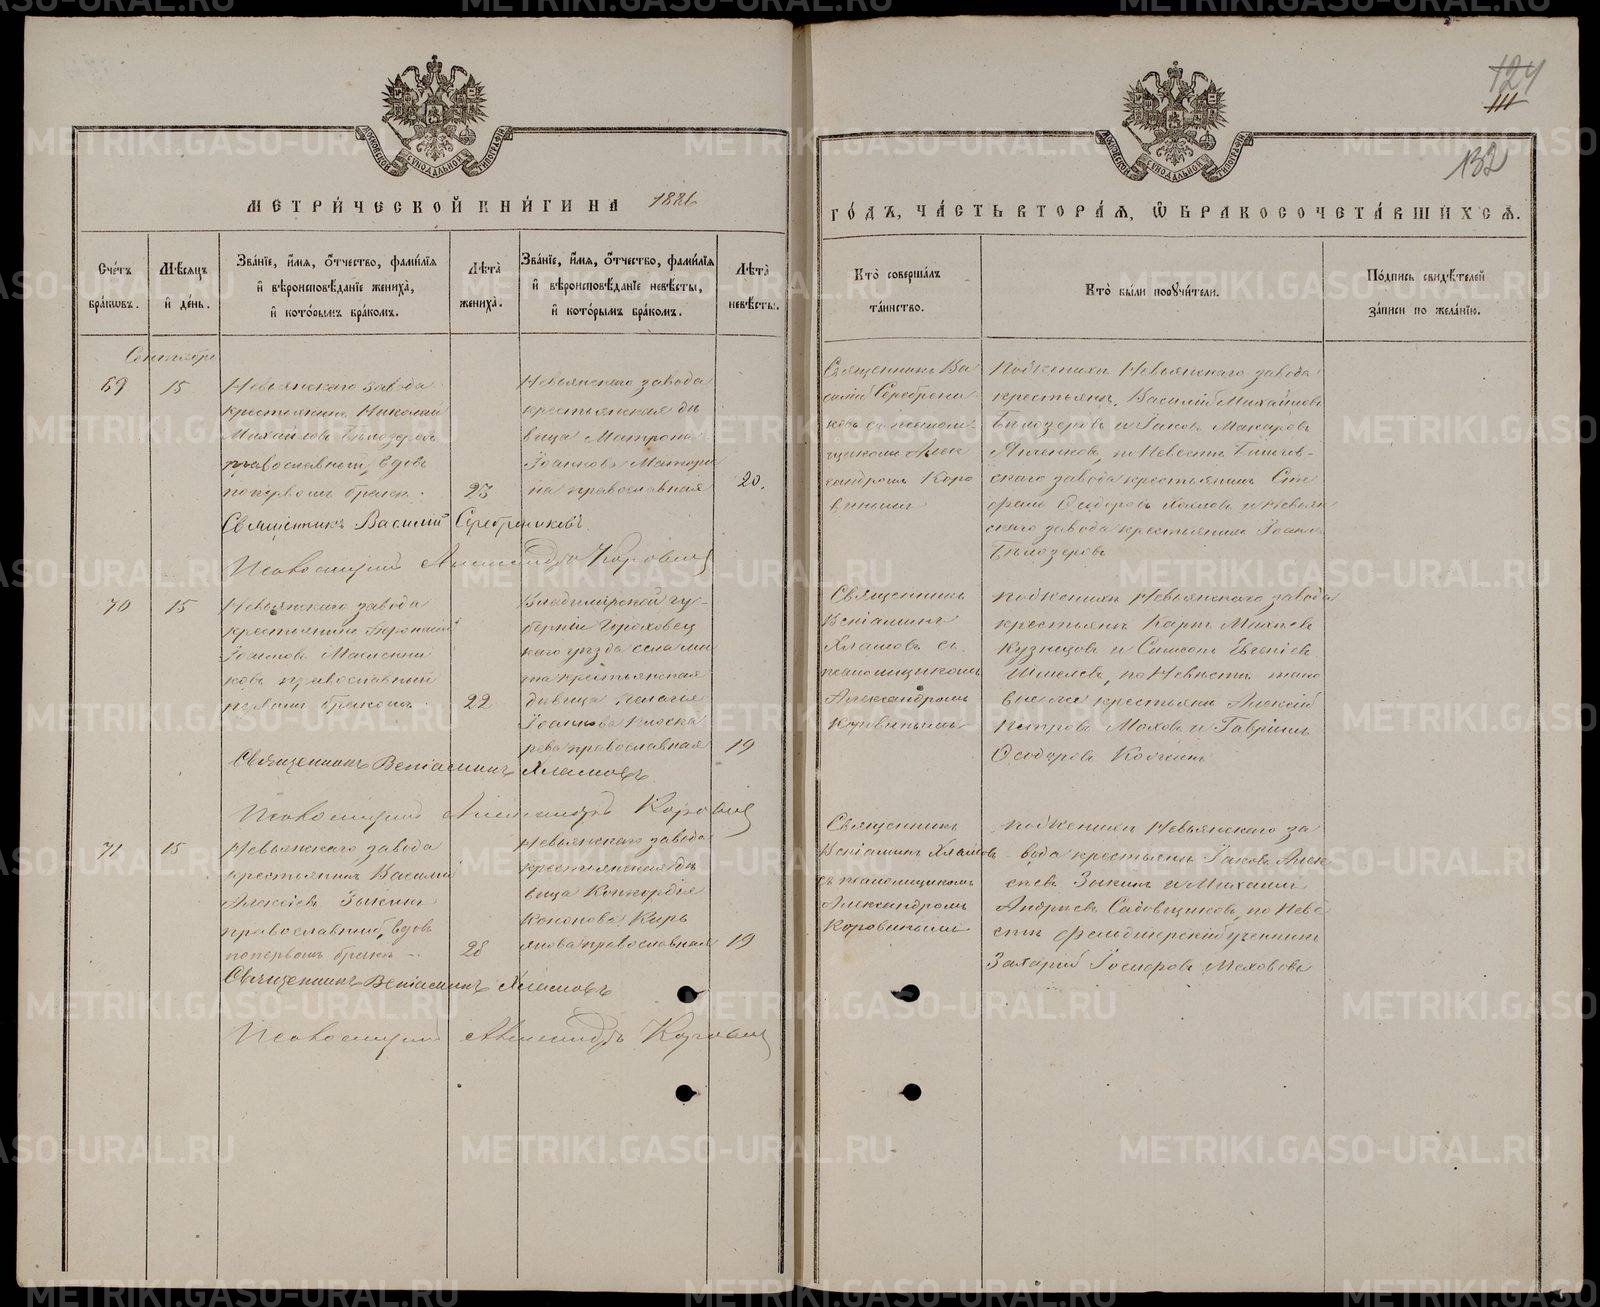 МЕТРИ́ЧЕСКОЙ КНИ́ГИ НА 1886
Сче́тъ бра́ковъ.
Мѣ́сяцъ и҆ де́нь.
Зва́нїе, и҆́мя, ѻ҆́тчество, фами́лїя и҆ вѣроисповѣ́данїе жениха̀, и҆ кото́рымъ бра́комъ.
Лѣ́та жениха̀.
Зва́нїе, и҆́мя, ѻ҆́тчество, фами́лїя и҆ вѣроисповѣ́данїе невѣ́сты, и҆ кото́рымъ бра́комъ.
Лѣ́та невѣ́сты.
Сентябрь
69 15
Невьянскаго завода
крестьянинъ Николай
Михайловъ Бѣлозеровъ
православный, вдовъ
по первомъ бракѣ.
23
Невьянскаго завода
крестьянская дѣ
вица Матрона
Іоаннова
на православная
20.
Священникъ Василій Серебренниковъ.
Псаломщикъ Александръ Коровинъ
70 15
Невьянскаго завода
крестьянинъ
Іоанновъ Маслени
ковъ православный
первымъ бракомъ.
22
Владимірской гу-
берніи Гороховец
каго уѣзда села
крестьянская
дѣвица Пелагія
Іоаннова
рева православная
19
Священникъ Веніаминъ Хламовъ.
Псаломщикъ Александръ Коровинъ
71 15
Невьянскаго завода
крестьянинъ Василій
Алексѣевъ Зыкинъ
православный, вдовъ
по первомъ бракѣ.
28
Невьянскаго завода
крестьянская дѣ
вица Конкордія
Кононова Кирь
янова православная
19
Священникъ Веніаминъ Хламовъ
Псаломщикъ Александръ Коровинъ
124
111
132
ГО́ДЪ, ЧА́СТЬ ВТОРА́Я, Ѡ҆ БРАКОСОЧЕТА́ВШИХСЯ.
Кто̀ соверша́лъ та́инство.
Кто̀ бы́ли порꙋчи́тели.
По́дпись свидѣ́телей за́писи по жела́нїю.
Священникъ Ва
силій Серебрени
ковъ съ псалом-
щикомъ Алек
сандромъ Коро
винымъ
По женихѣ Невьянскаго завода
крестьян. Василій Михайловъ
Бѣлозеровъ и Іаковъ Макаровъ
по невѣстѣ
скаго завода крестьянинъ Сте
фанъ Сидоровъ и Невьян
скаго завода крестьянинъ Іоаннъ
Бѣлозеровъ
Священникъ
Веніаминъ
Хламовъ съ
псаломщикомъ
Александромъ
Коровинымъ
По женихѣ Невьянскаго завода
крестьян. Карпъ
Кузнецовъ и Симеонъ Евгеніевъ
Шмелевъ, по невѣстѣ тако
вые же крестьян. Алексѣй
Петровъ Маховъ и Гавріилъ
Сидоровъ
Священникъ
Веніаминъ Хламовъ
съ псаломщикомъ
Александромъ
Коровинымъ
По женихѣ Невьянскаго за
вода крестьян. Іаковъ Алек
сѣевъ Зыкинъ и Михаилъ
Андреевъ Садовщиковъ, по невѣ
стѣ фельдшерскій ученикъ
Захарій